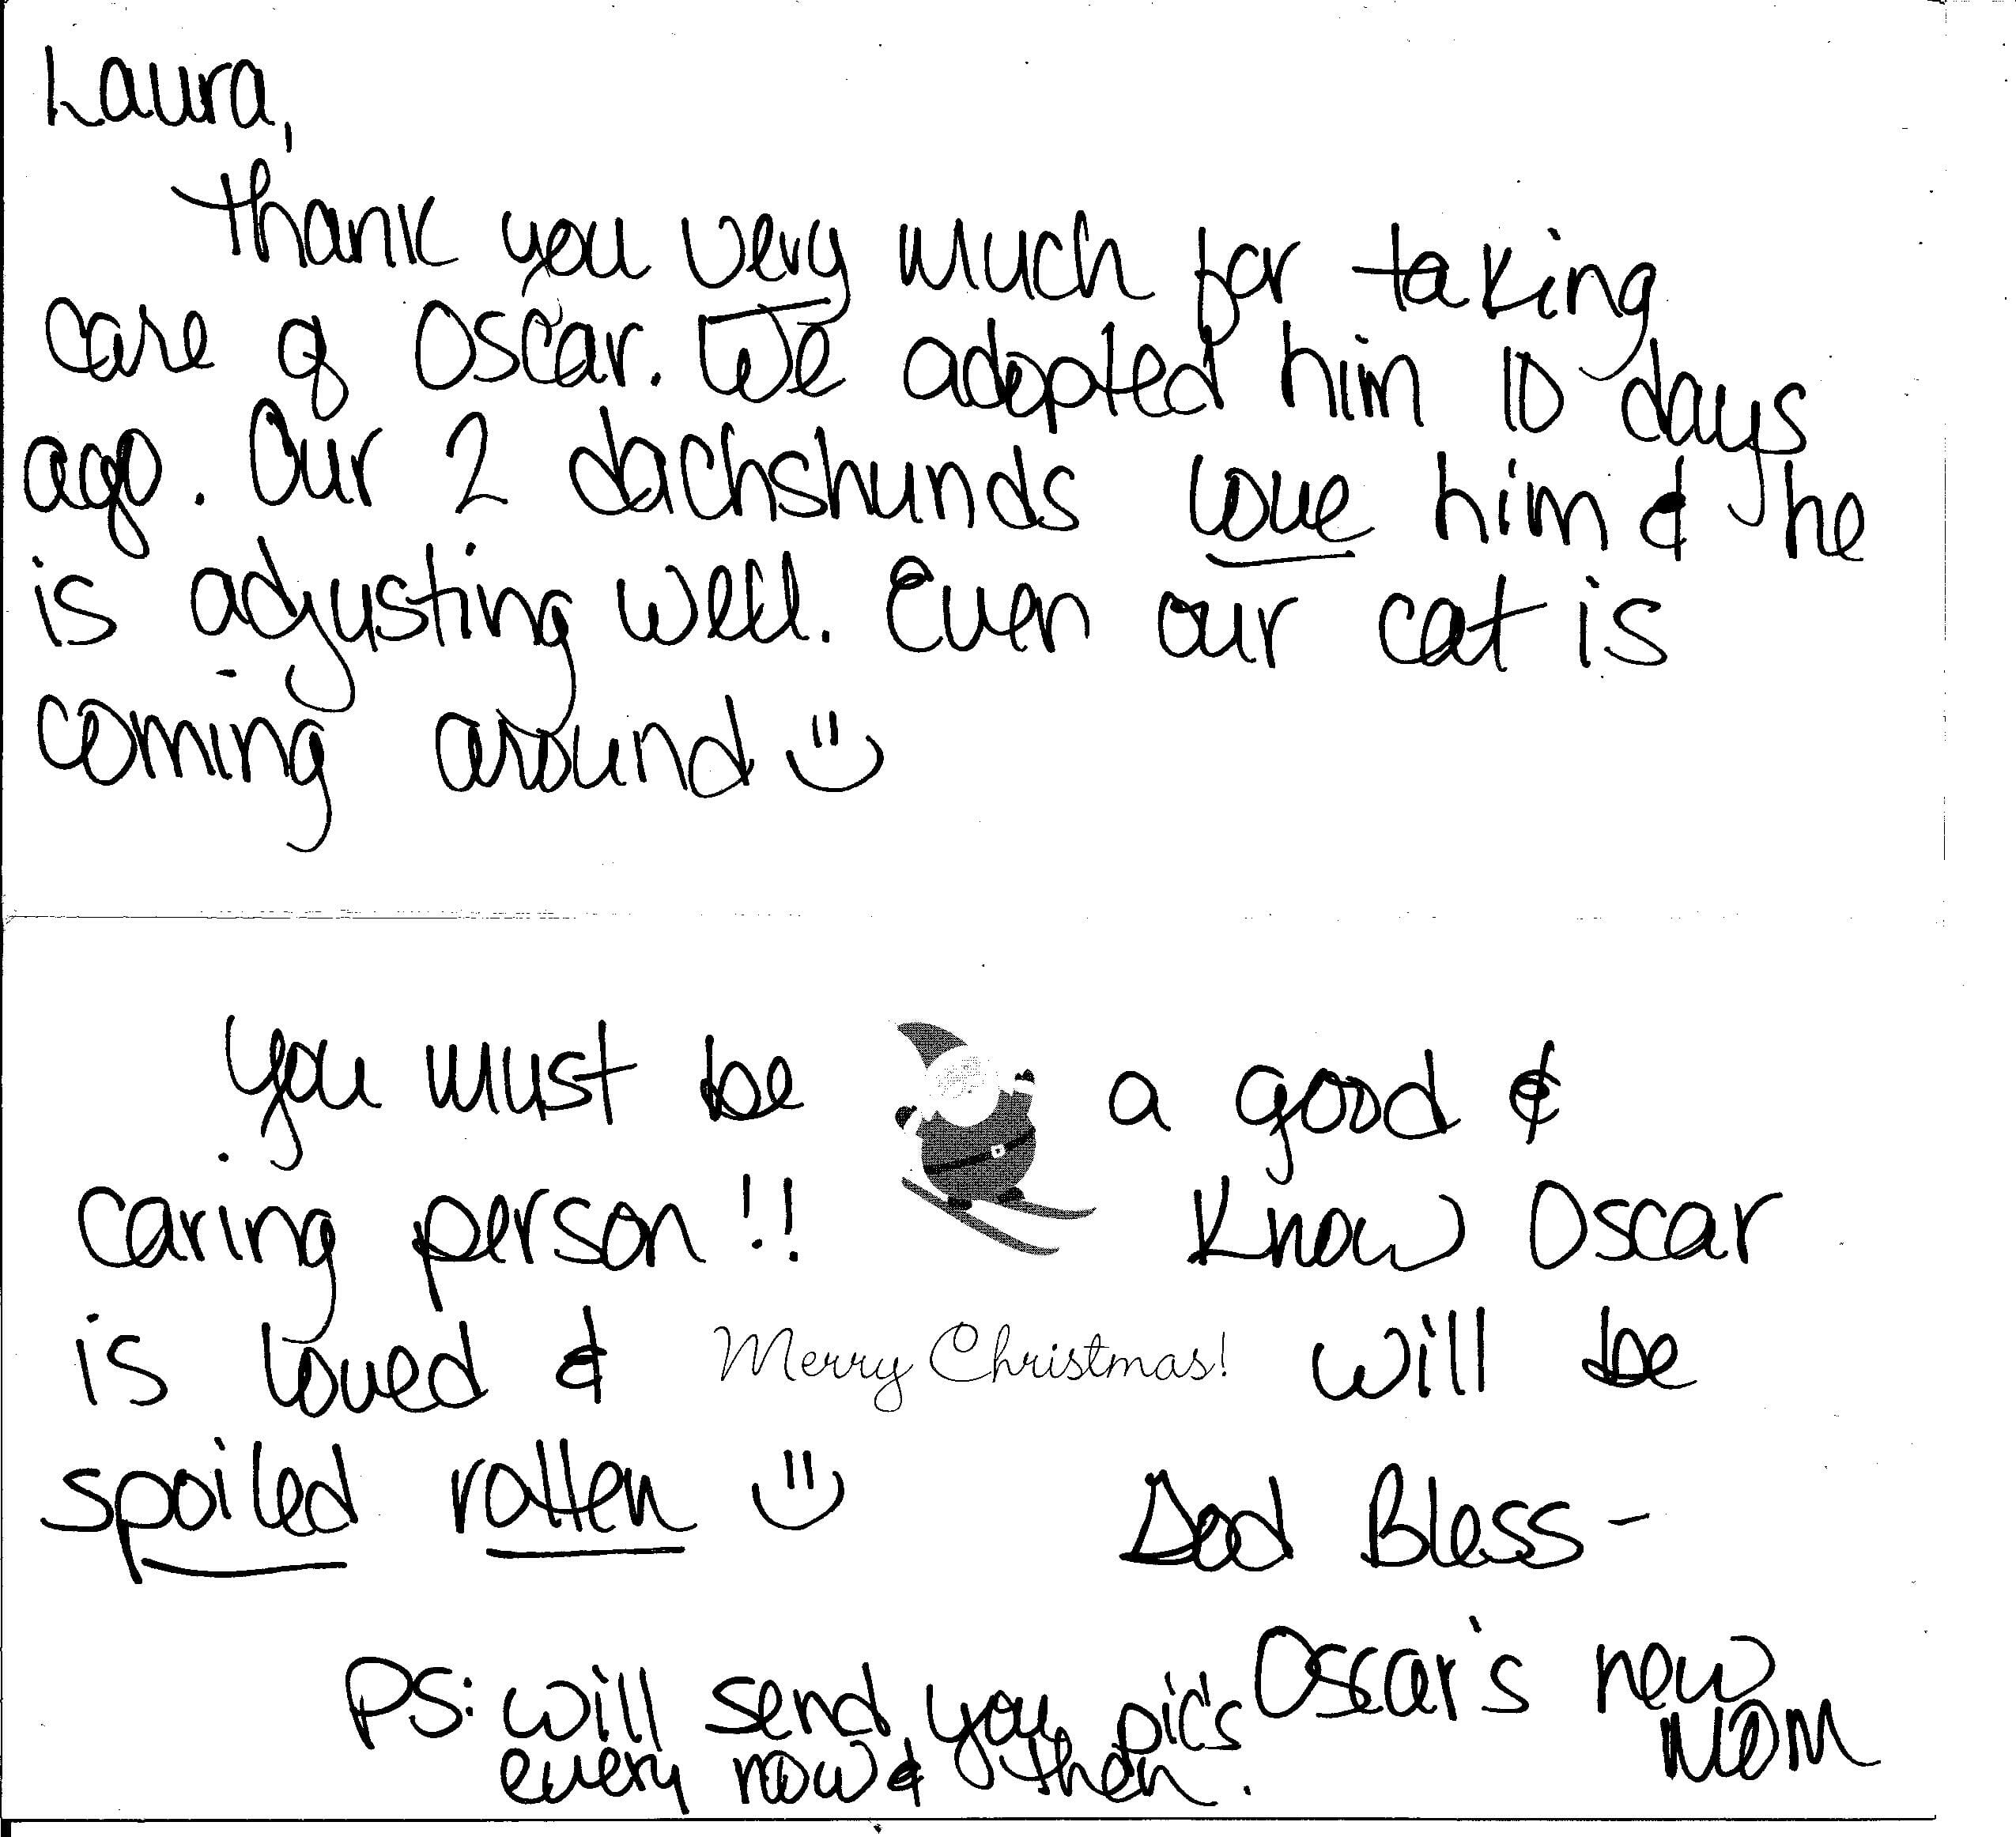 Laura,
Thank you very much for taking
care of Oscar. We adopted him 10 days
ago. Our 2 dachshunds love him & he
is adjusting well. Even our cat is
coming around
You must be a good &
caring person!! Know Oscar
is loved & Merry Christmas! will be
spoiled rotten God Bless-
Oscar's new
mom
PS: will send you pic's
every now & then.